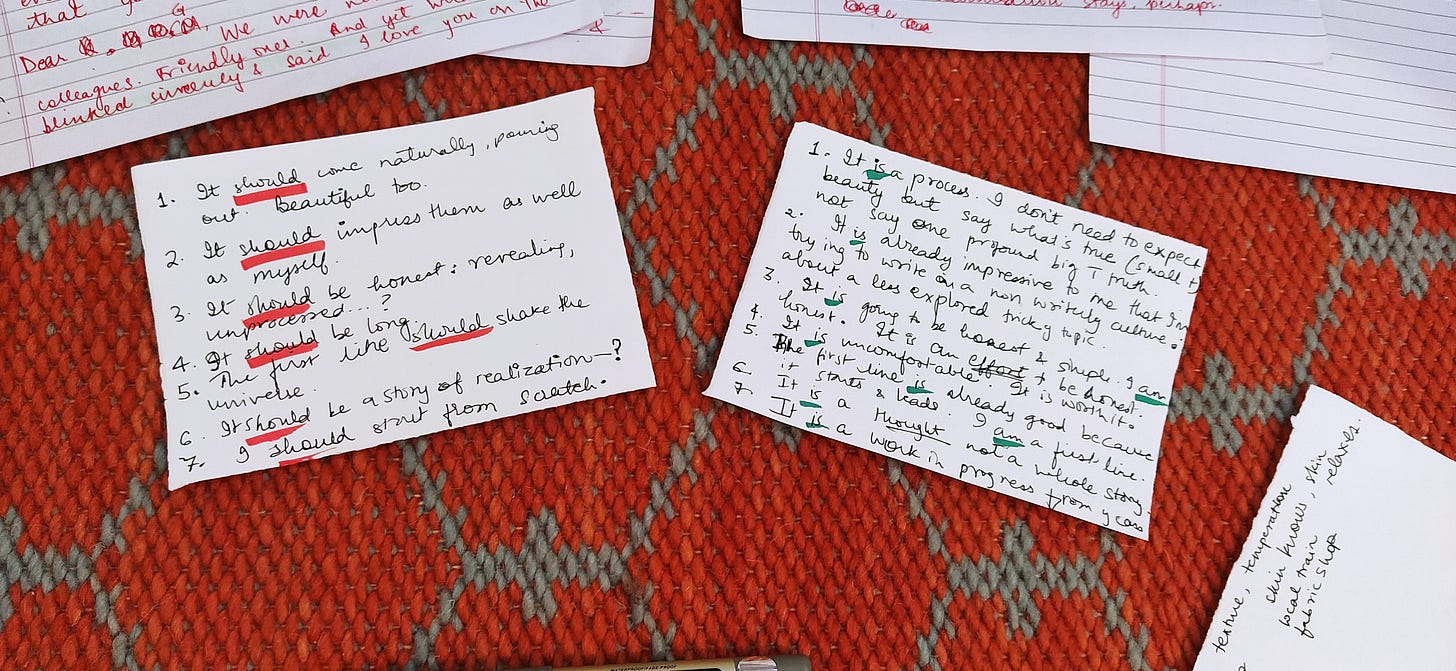 that
Dear G, We were
colleagues. Friendly ones. And yet
blinked sincerely & said I love you on the
stays, perhaps.
1. It should come naturally, pouring
out. Beautiful too.
2. It should impress them as well
as myself.
3. It should be honest: revealing,
unprocessed...?
4. It should be long.
5. The first line should shake the
universe.
6. It should be a story of realization—?
7. I should start from scratch.
1. It is a process. I don't need to expect
beauty but say what's true (small t)
not say one profound big T truth.
2. It is already impressive to me that I'm
trying to write on a non writerly culture.
about a less explored tricky topic.
3. It is going to be honest & simple. I am
honest. It is an effort to be honest.
4. It is uncomfortable. It is worth it.
5. The first line is already good because
it starts & leads. I am a first line.
6. It is a thought not a whole story
7. It is a work in progress from years
texture, temperation
skin knows, skin relaxes.
local train
fabric shop
WATERPROOF/FADE PROOF